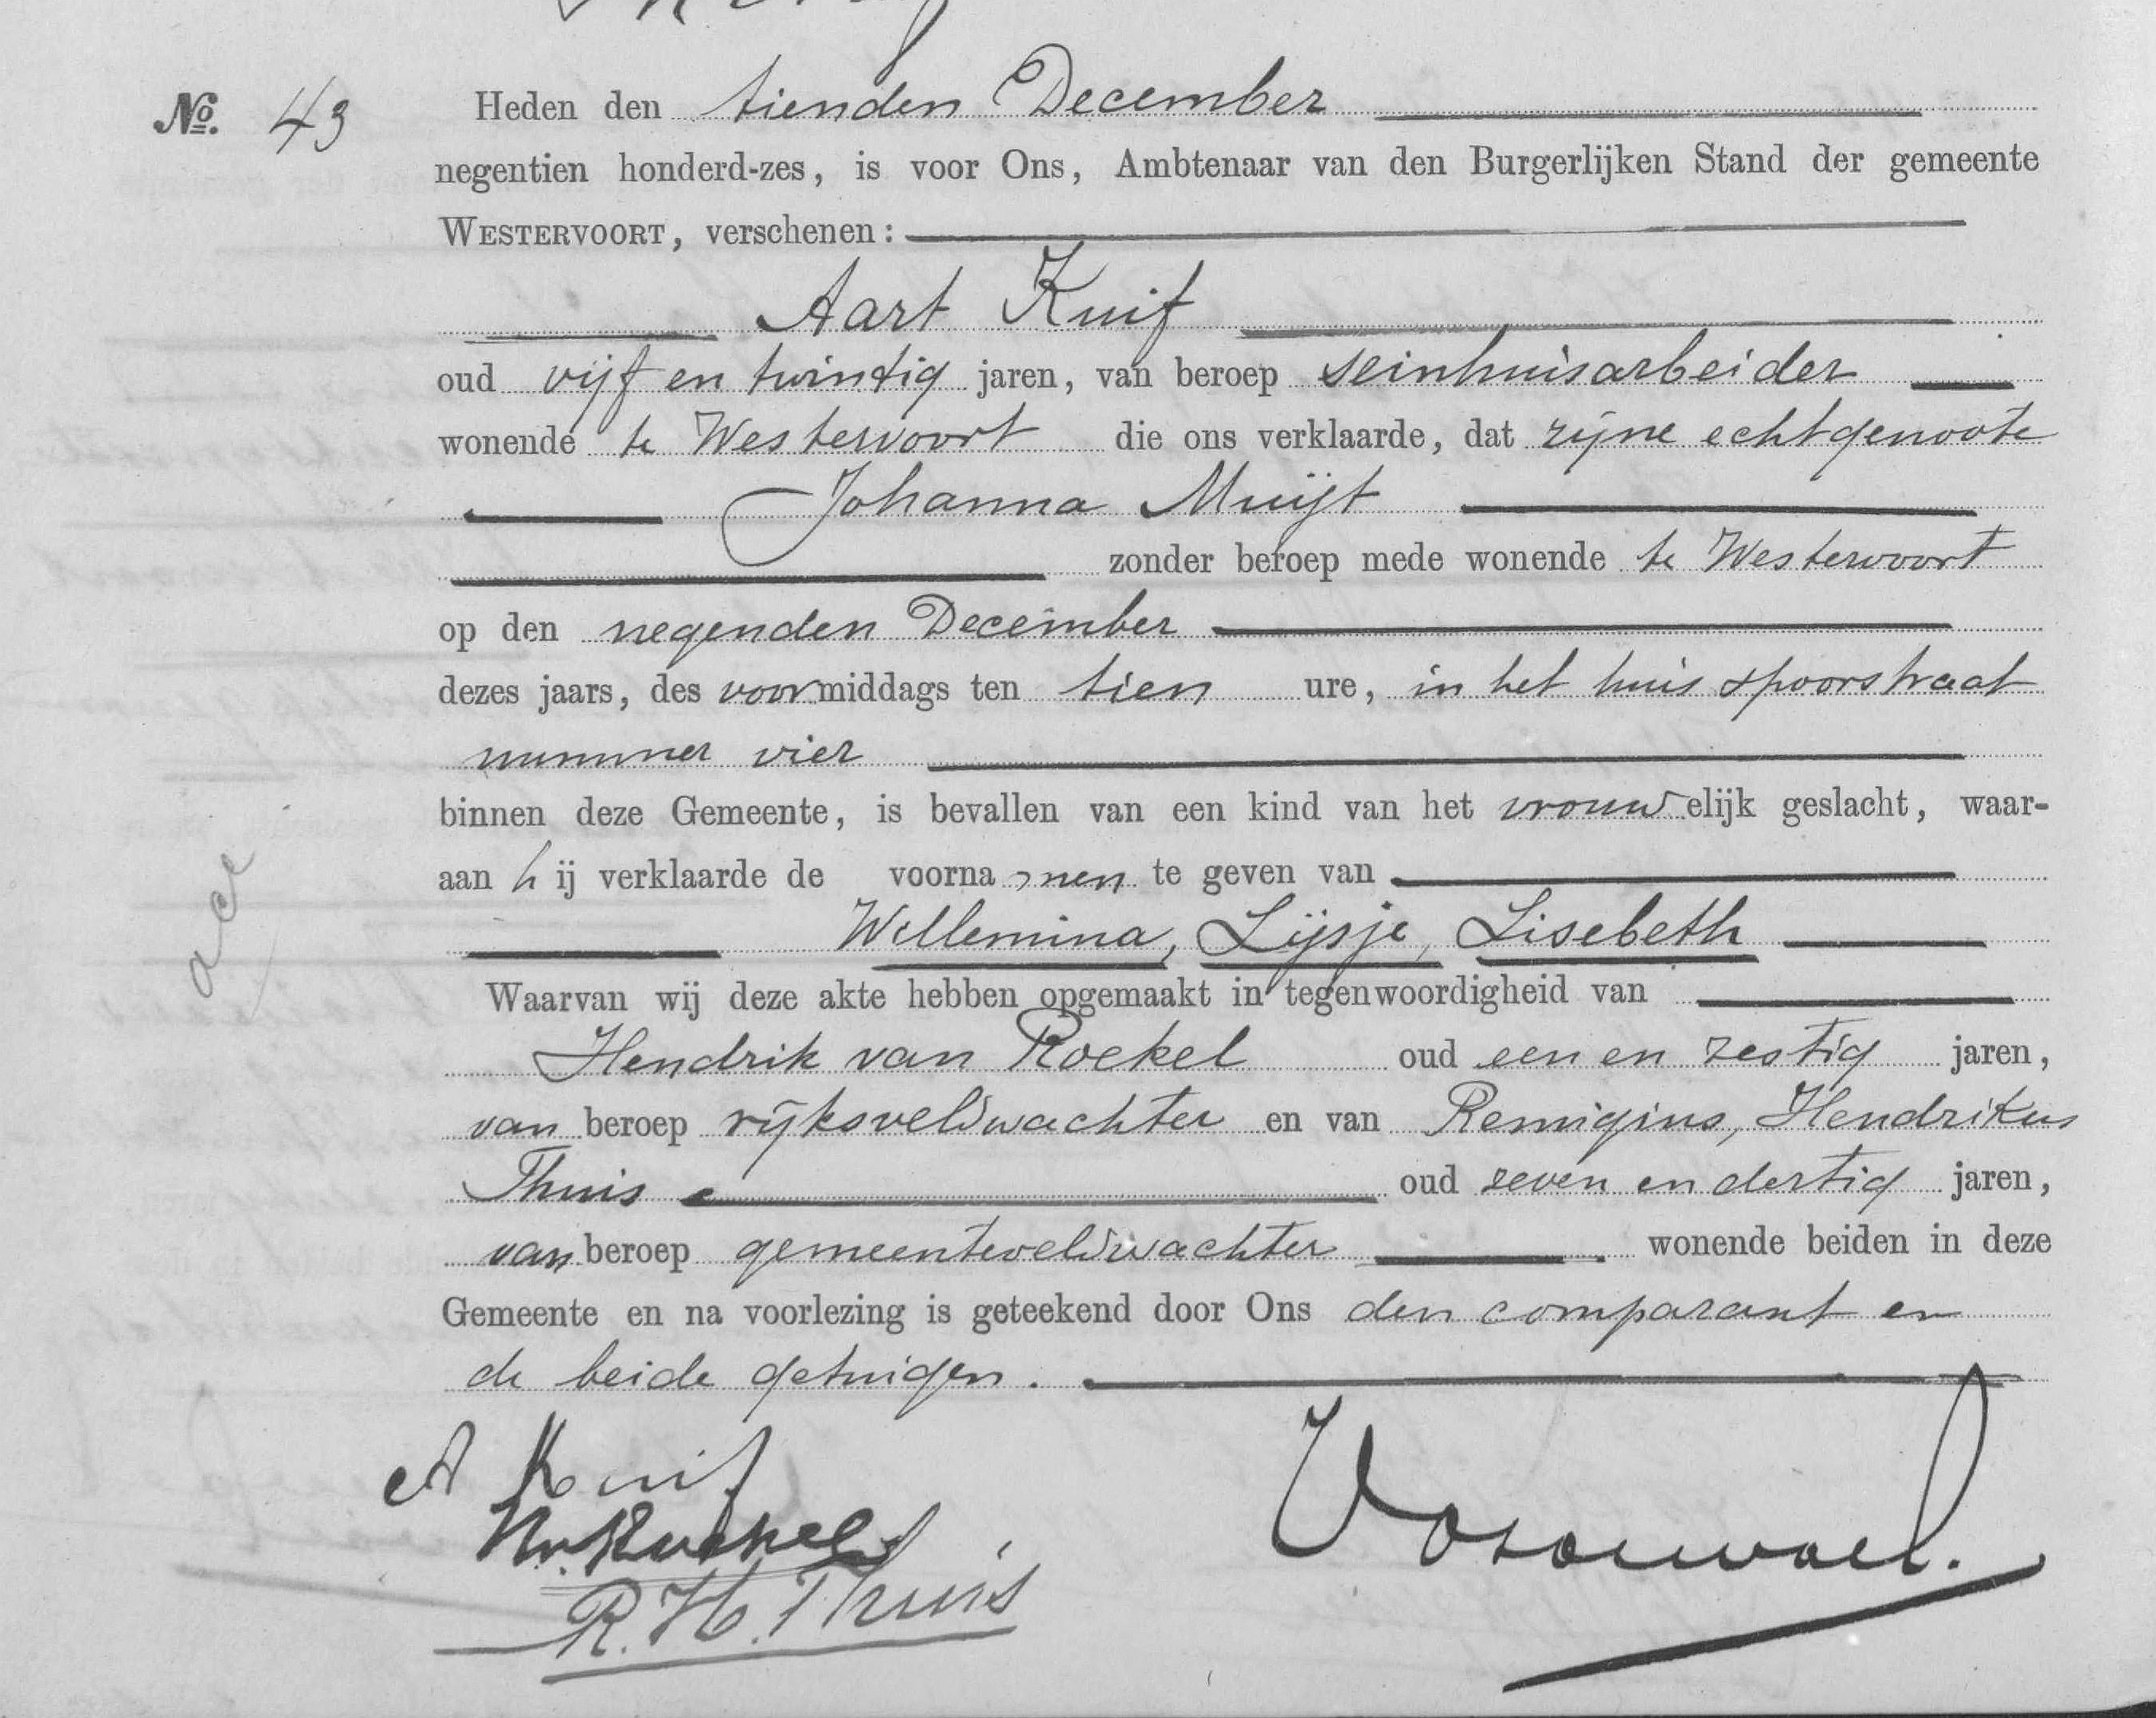 No. 43
Heden den tienden December
negentien honderd-zes, is voor Ons, Ambtenaar van den Burgerlijken Stand der gemeente
WESTERVOORT, verschenen:
Aart Kuif
oud vijf en twintig jaren, van beroep seinhuisarbeider
wonende te Westervoort die ons verklaarde, dat zijne echtgenoote
Johanna Muijt
zonder beroep mede wonende te Westervoort
op den negenden December
dezes jaars, des voormiddags ten tien ure, in het huis spoorstraat
nummer vier
binnen deze Gemeente, is bevallen van een kind van het vrouwelijk geslacht, waar-
aan hij verklaarde de voornamen te geven van
Willemina, Lijsje, Lisebeth
Waarvan wij deze akte hebben opgemaakt in tegenwoordigheid van
Hendrik van Roekel oud een en zestig jaren,
van beroep rijksveldwachter en van Remigius, Hendrikus
Thuis oud zeven en dertig jaren,
van beroep gemeenteveldwachter wonende beiden in deze
Gemeente en na voorlezing is geteekend door Ons den comparant en
de beide getuigen.
A Kuif
Hv Roekel
R. H. Thuis